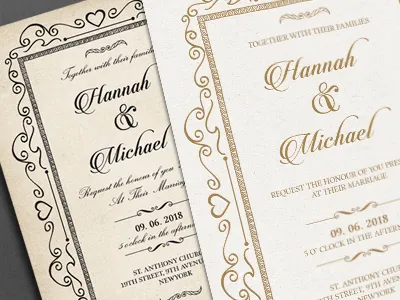 Together with their families
Hannah
&
Michael
Request the honour of you
At Their Marriag
09. 06. 2018
5 o'clock in the afterno
ST. ANTHONY CHURCH
19TH STREET, 9TH AVENUE
NEWYORK
TOGETHER WITH THEIR FAMILIES
Hannah
&
Michael
REQUEST THE HONOUR OF YOU PRES
AT THEIR MARRIAGE
09. 06. 2018
5 O' CLOCK IN THE AFTERN
ST. ANTHONY CHU
19TH STREET, 9TH A
NEWYORK